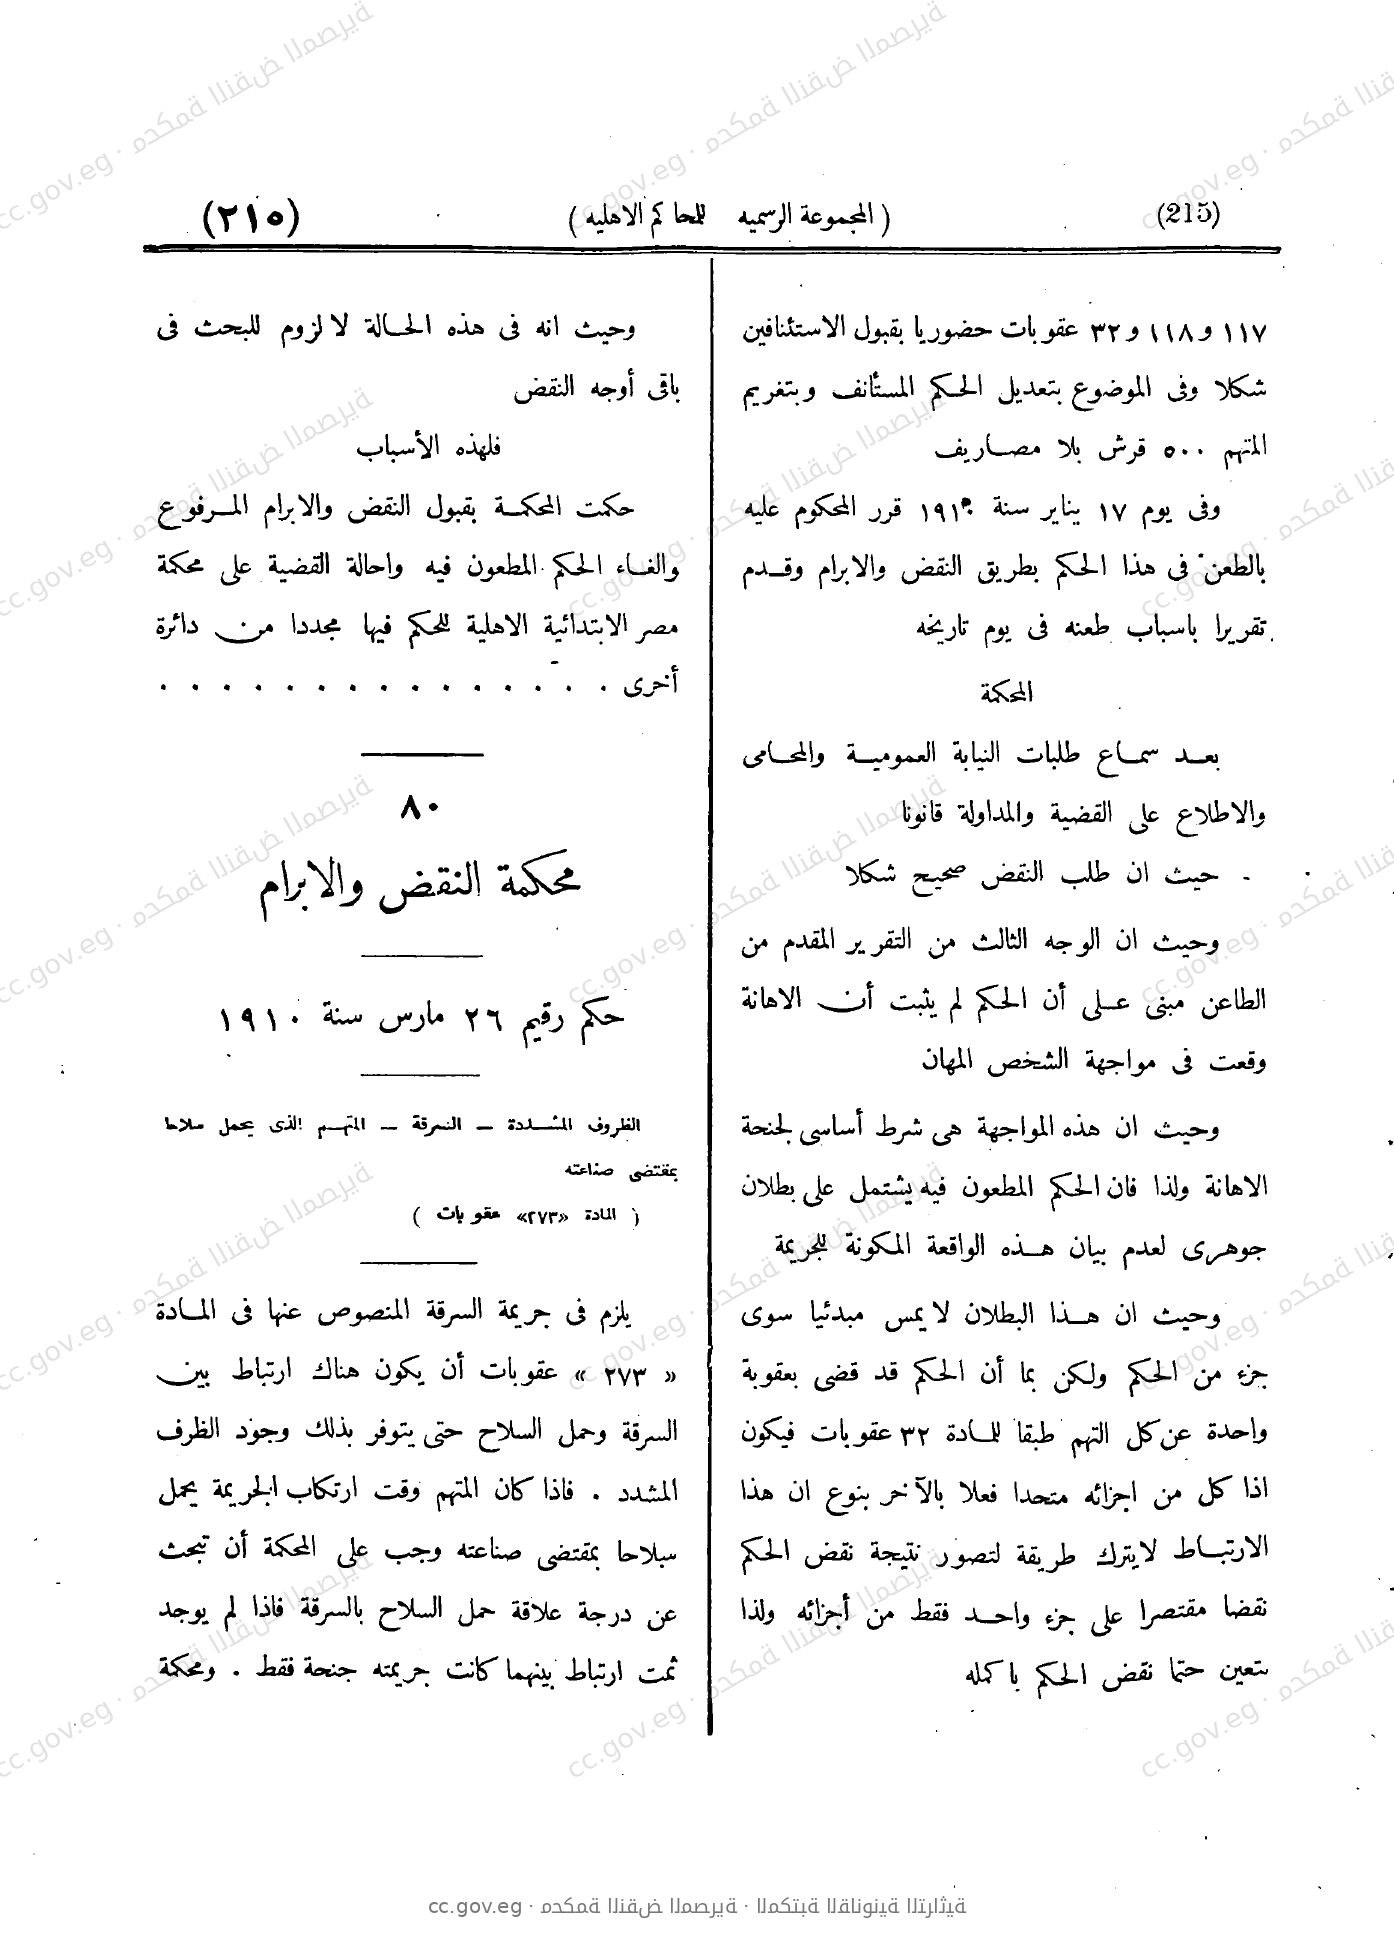 (215) ( المجموعة الرسميه للمحاكم الاهليه ) (٢١٥)
١١٧ و ١١٨ و ٣٢ عقوبات حضوريا بقبول الاستئنافين
شكلا وفى الموضوع بتعديل الحكم المستأنف وبتغريم
المتهم ٥٠٠ قرش بلا مصاريف
وفى يوم ١٧ يناير سنة ١٩١٠ قرر المحكوم عليه
بالطعن فى هذا الحكم بطريق النقض والابرام وقدم
تقريرا باسباب طعنه فى يوم تاريخه
المحكمة
بعد سماع طلبات النيابة العمومية والمحامى
والاطلاع على القضية والمداولة قانونا
حيث ان طلب النقض صحيح شكلا
وحيث ان الوجه الثالث من التقرير المقدم من
الطاعن مبنى على أن الحكم لم يثبت أن الاهانة
وقعت فى مواجهة الشخص المهان
وحيث ان هذه المواجهة هى شرط أساسى لجنحة
الاهانة ولذا فان الحكم المطعون فيه يشتمل على بطلان
جوهرى لعدم بيان هذه الواقعة المكونة للجريمة
وحيث ان هذا البطلان لا يمس مبدئيا سوى
جزء من الحكم ولكن بما أن الحكم قد قضى بعقوبة
واحدة عن كل التهم طبقا للمادة ٣٢ عقوبات فيكون
اذا كل من اجزائه متحدا فعلا بالآخر بنوع ان هذا
الارتباط لا يترك طريقة لتصور نتيجة نقض الحكم
نقضا مقتصرا على جزء واحد فقط من أجزائه ولذا
يتعين حتما نقض الحكم باكمله
وحيث انه فى هذه الحالة لا لزوم للبحث فى
باقى أوجه النقض
فلهذه الأسباب
حكمت المحكمة بقبول النقض والابرام المرفوع
والغاء الحكم المطعون فيه واحالة القضية على محكمة
مصر الابتدائية الاهلية للحكم فيها مجددا من دائرة
أخرى . . . . . . . . . . . . . . .
٨٠
محكمة النقض والابرام
حكم رقيم ٢٦ مارس سنة ١٩١٠
الظروف المشددة – السرقة – المتهم الذى يحمل سلاحا
بمقتضى صناعته
( المادة «٢٧٣» عقوبات )
يلزم فى جريمة السرقة المنصوص عنها فى المادة
« ٢٧٣ » عقوبات أن يكون هناك ارتباط بين
السرقة وحمل السلاح حتى يتوفر بذلك وجود الظرف
المشدد . فاذا كان المتهم وقت ارتكاب الجريمة يحمل
سلاحا بمقتضى صناعته وجب على المحكمة أن تبحث
عن درجة علاقة حمل السلاح بالسرقة فاذا لم يوجد
ثمت ارتباط بينهما كانت جريمته جنحة فقط . ومحكمة
cc.gov.eg · محكمة النقض المصرية · المكتبة القانونية التراثية